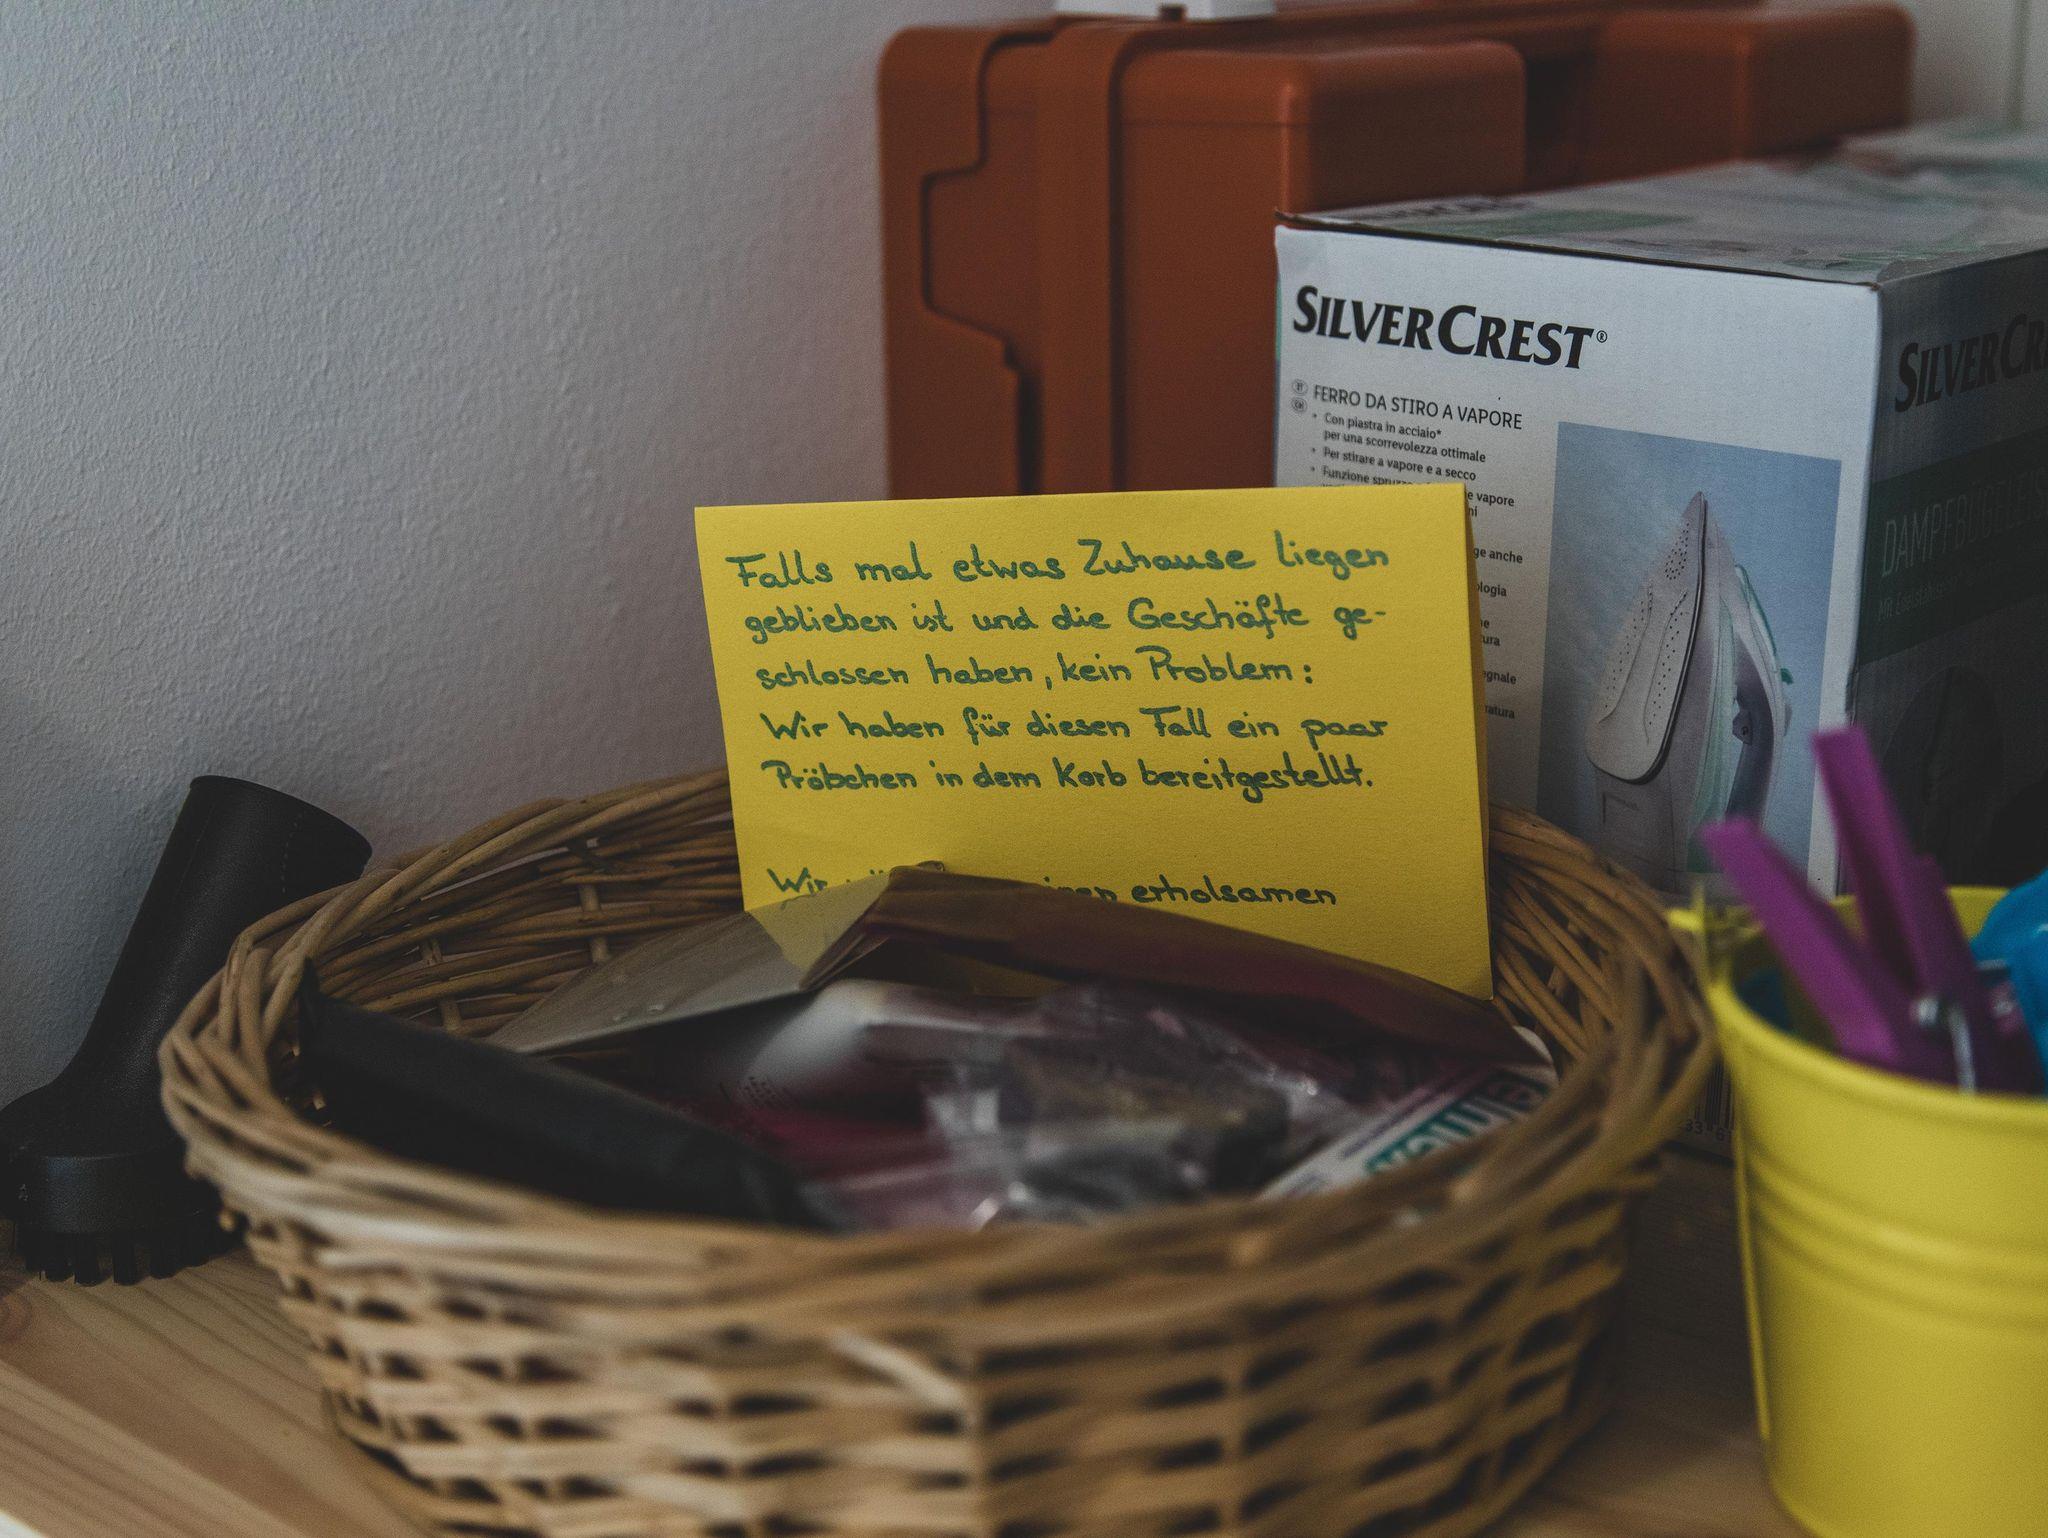 SILVERCREST®
SILVERCR
IT
CH
FERRO DA STIRO A VAPORE
• Con piastra in acciaio*
per una scorrevolezza ottimale
• Per stirare a vapore e a secco
• Funzione vapore
ge anche
ologia
egnale
Falls mal etwas Zuhause liegen
geblieben ist und die Geschäfte ge-
schlossen haben, kein Problem:
Wir haben für diesen Fall ein paar
Pröbchen in dem Korb bereitgestellt.
Wir erholsamen